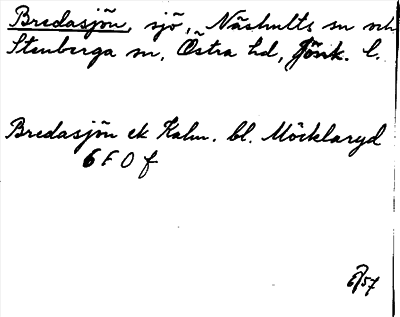 Bredasjön, sjö, Näshults sn och
Stenberga sn, Östra hd, Jönk. l.
Bredasjön ek Kalm. bl. Möcklaryd
6 F 0 f
57